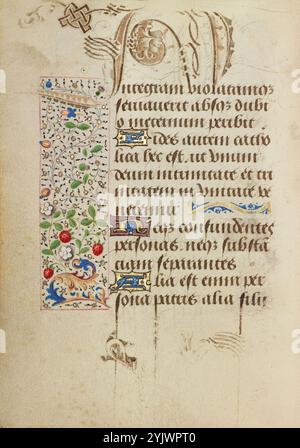 integram inviolatamq3
seruauerit absq3 dubi
o in eternum peribit
Fides autem catho
lica hec est. ut vnum
deum in trinitate et tri
nitatem in vnitate ve
neremur
Neq3 confundentes
personas. neq3 substan
ciam separantes
Alia est enim per
sona patris alia filij
alamy
Image ID: 2YJWPT0
www.alamy.com